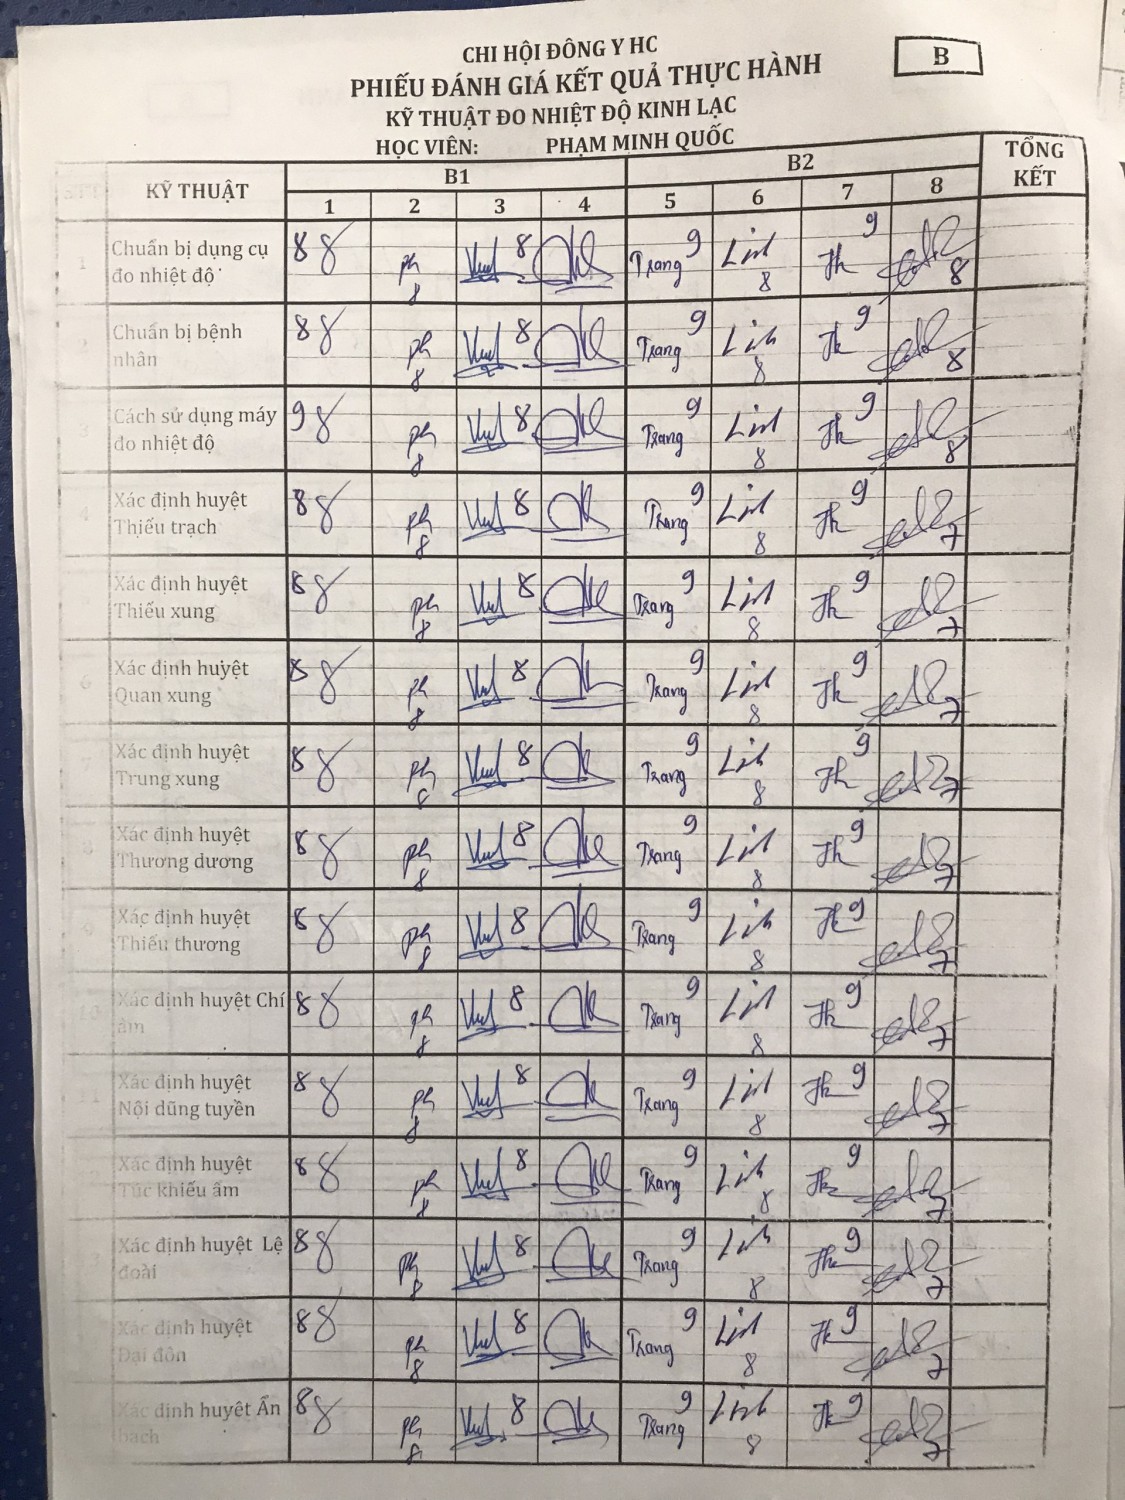 CHI HỘI ĐÔNG Y HC
B
PHIẾU ĐÁNH GIÁ KẾT QUẢ THỰC HÀNH
KỸ THUẬT ĐO NHIỆT ĐỘ KINH LẠC
HỌC VIÊN: PHẠM MINH QUỐC
STT KỸ THUẬT B1 B2 TỔNG KẾT
1 2 3 4 5 6 7 8
1 Chuẩn bị dụng cụ đo nhiệt độ 8 8 ph 8 8 Trang 9 Linh 8 Th 9 8
2 Chuẩn bị bệnh nhân 8 8 ph 8 8 Trang 9 Linh 8 Th 9 8
3 Cách sử dụng máy đo nhiệt độ 9 8 ph 8 8 Trang 9 Linh 8 Th 9 8
4 Xác định huyệt Thiếu trạch 8 8 ph 8 8 Trang 9 Linh 8 Th 9 7
Xác định huyệt Thiếu xung 8 8 ph 8 8 Trang 9 Linh 8 Th 9 7
6 Xác định huyệt Quan xung 8 8 ph 8 8 Trang 9 Linh 8 Th 9 7
7 Xác định huyệt Trung xung 8 8 ph 8 8 Trang 9 Linh 8 Th 9 7
8 Xác định huyệt Thương dương 8 8 ph 8 8 Trang 9 Linh 8 Th 9 7
9 Xác định huyệt Thiếu thương 8 8 ph 8 8 Trang 9 Linh 8 Th 9 7
10 Xác định huyệt Chí âm 8 8 ph 8 8 Trang 9 Linh 8 Th 9 7
11 Xác định huyệt Nội dũng tuyền 8 8 ph 8 8 Trang 9 Linh 8 Th 9 7
Xác định huyệt Túc khiếu âm 8 8 ph 8 8 Trang 9 Linh 8 Th 9 7
Xác định huyệt Lệ đoài 8 8 ph 8 8 Trang 9 Linh 8 Th 9 7
Xác định huyệt Đại đôn 8 8 ph 8 8 Trang 9 Linh 8 Th 9 7
Xác định huyệt Ẩn bạch 8 8 ph 8 8 Trang 9 Linh 8 Th 9 7